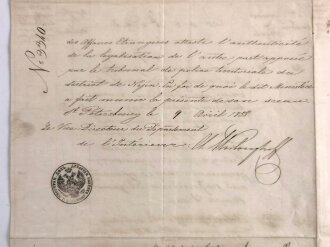 No: 3310
des Affaires Etrangères atteste l'authenticité
de la légalisation de l'autre part apposée
par le Tribunal de police territoriale du
district de Foi de quoi le dit Ministère
a fait munir la présente de son sceau
St Pétersbourg le 9 Avril 1888
Le Vice-Directeur du Département
de l'Intérieur